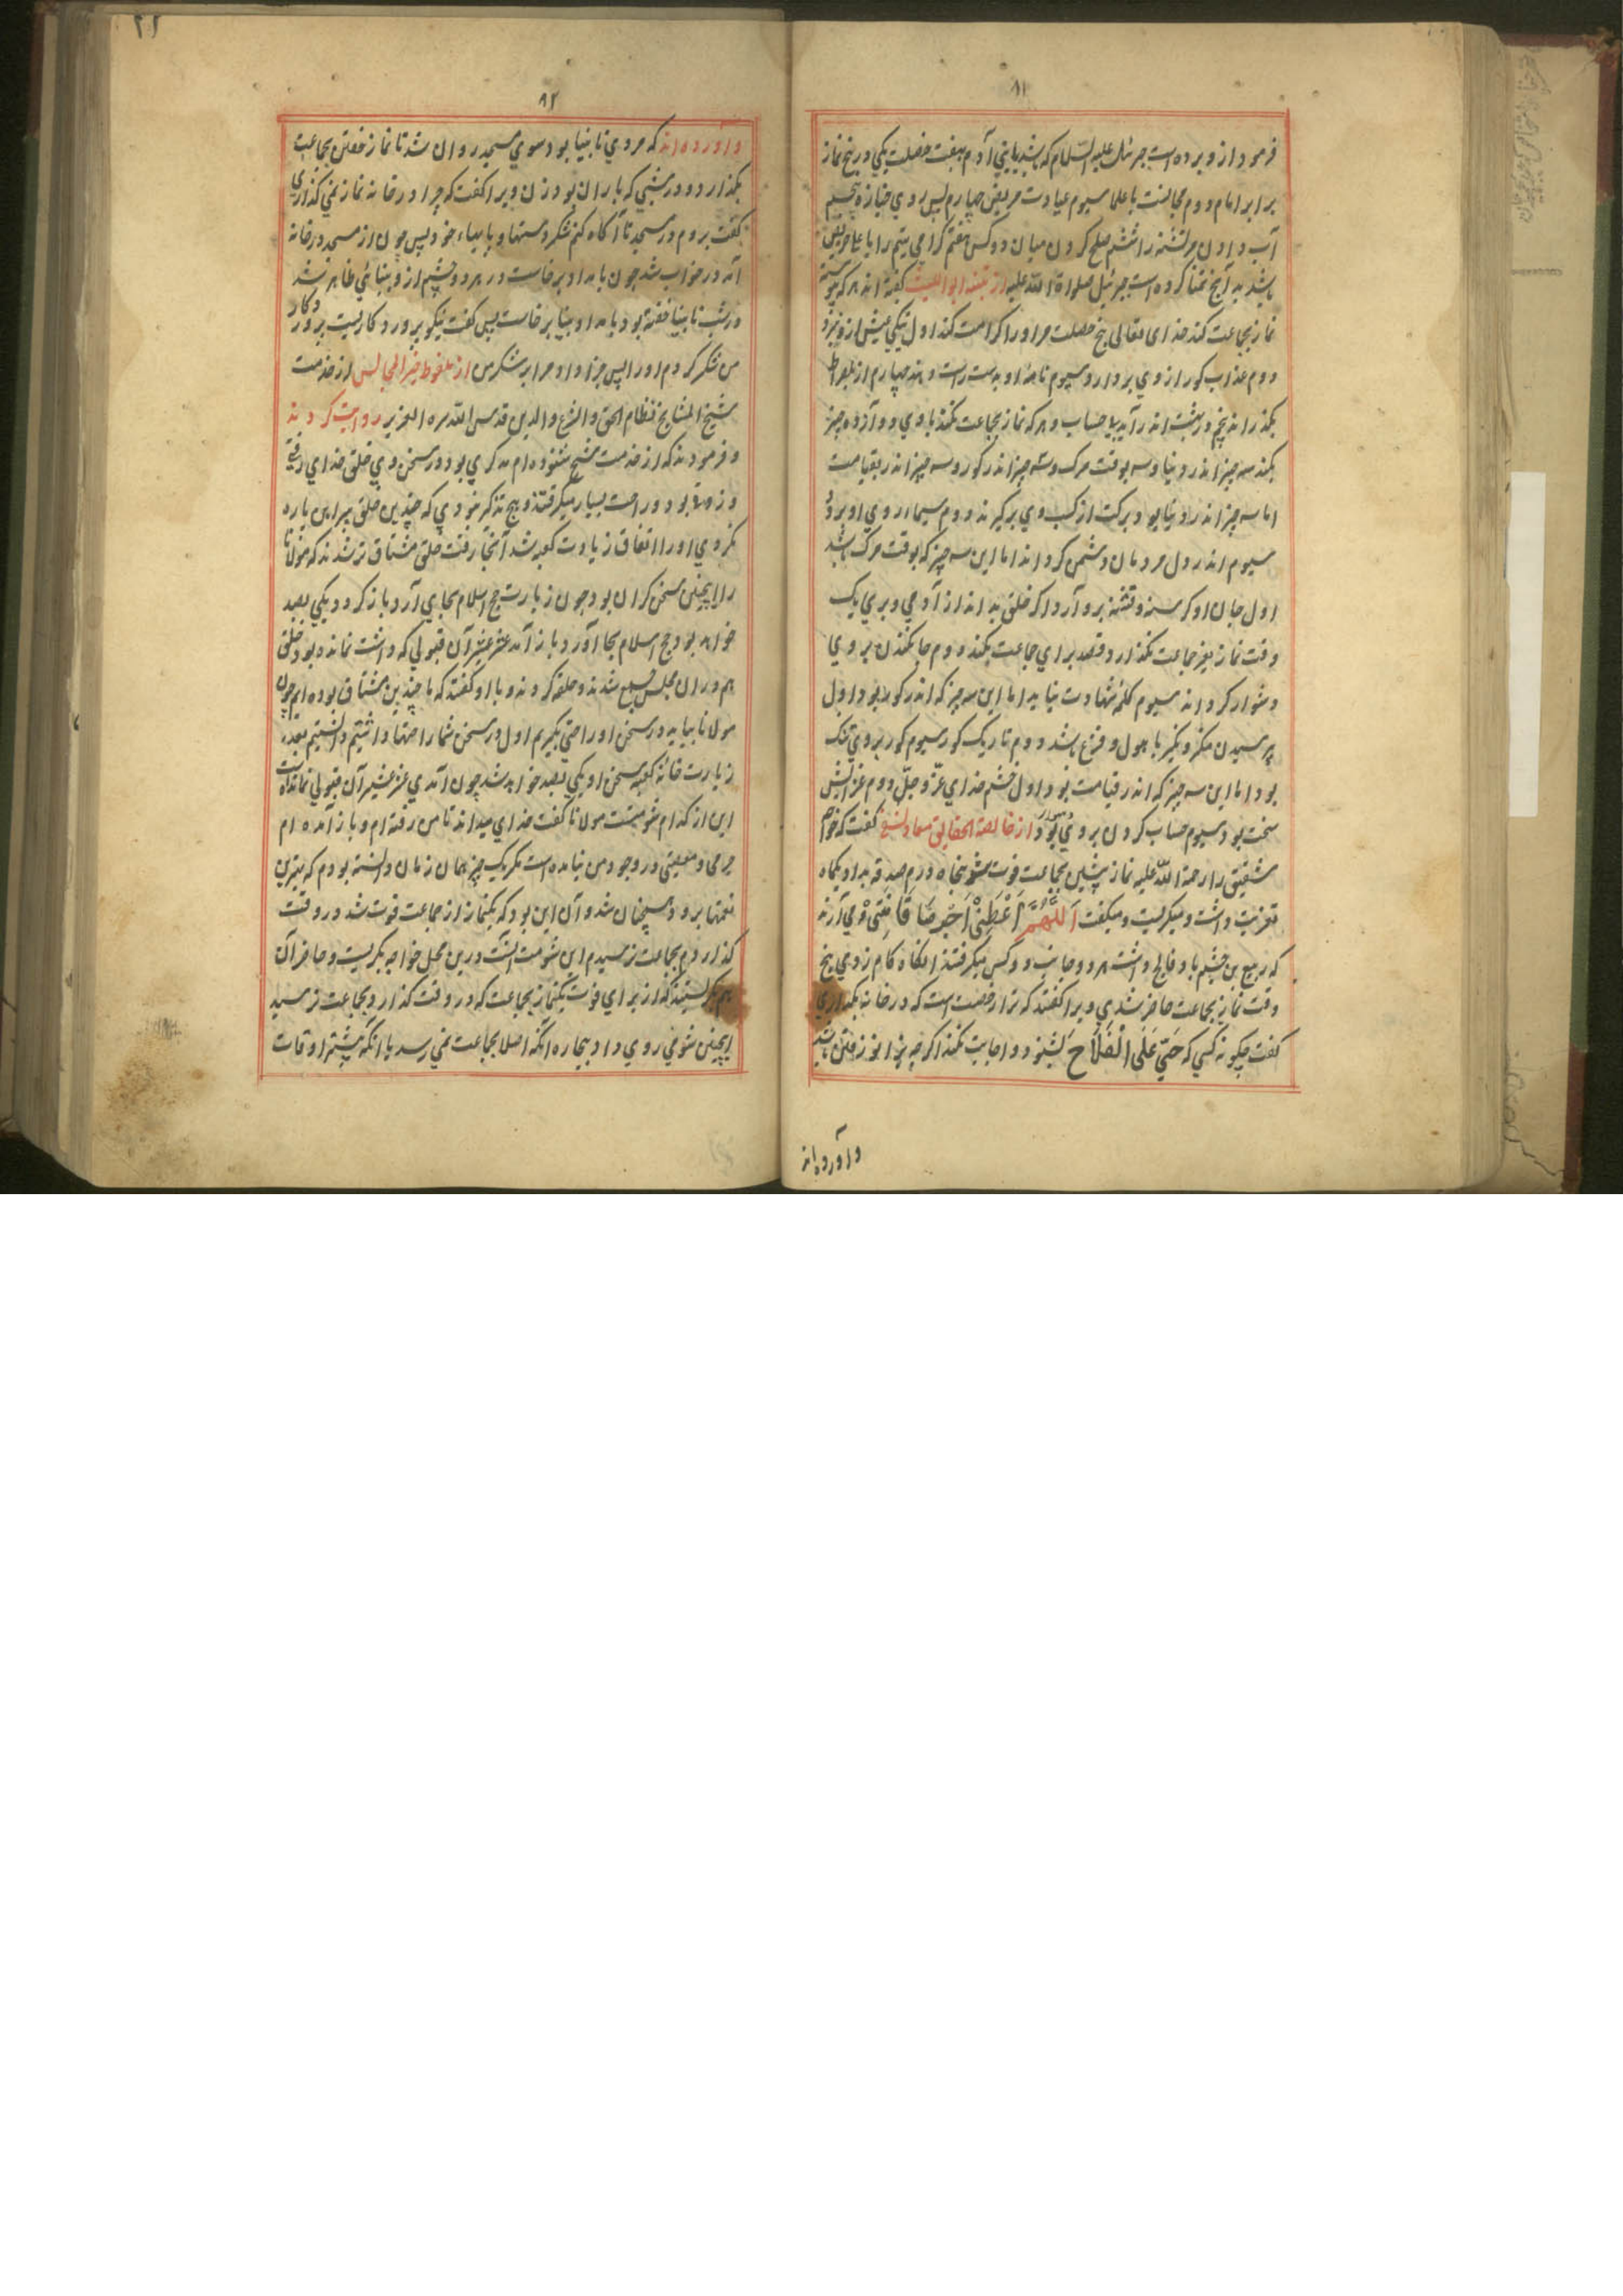 ۸۱
فرمود ازو برده است جبرئیل علیه السلام که باشد یا بنی آدم بهفت خصلت یکی در پنج نماز
برابر امام دوم مجالست با علما سیوم عیادت مریض چهارم پس روی جنازه پنجم
آب دادن مرتشنه را ششم صلح کردن میان دو کس هفتم گرامی یتیم را یا علی حریص
باشد به آنچ تمنا کرده است جبرئیل صلواة الله علیه از تنبیه ابو اللیث گفته اند هر که پیوسته
نماز بجماعت کند خدای تعالی پنج خصلت مر او را کرامت کند اول تنگی عیش ازو ببرد
دوم عذاب کور ازوی بردارد سیوم نامهٔ او بدست راست دهند چهارم از پلصراط
بکذراند پنجم در بهشت اندر آید بلا حساب و هر که نماز بجماعت نکند با وی دوازده چیز
بکند سه چیز اندر دنیا و سه بوقت مرک و سه چیز اندر کور و سه چیز اندر بقیامت
اما سه چیز اندر دنیا بود برکت از کسب وی برکیرند دوم سیما از روی او برود
سیوم اندر دل مردمان دشمن کرداند اما این سه چیز که بوقت مرک باشد
اول جان او کرسنه و تشنه برو آرد اکر خلق بداند از آدمی و پری یک
وقت نماز بغیر جماعت نکذارد و قصد برای جماعت بکند دوم جا بکندن بروی
دشوار کرداند سیوم کلمهٔ شهادت نیاید اما این سه چیز که اندر کور بود اول
پرسیدن منکر و نکیر با هول و فزع باشد دوم تاریک کور سیوم کور بروی تنک
بود اما این سه چیز که اندر قیامت بود اول خشم خدای عزّ و جلّ دوم عذابش
سخت بود سیوم حساب کردن بروی بود از خالصة الحقایق گفت که خواجه
شقیق را رحمة الله علیه نماز پیشین بجماعت فوت شد پنجاه درم صدقه بداد یکماه
تعزیت داشت و میکریست و میکفت اَللّٰهُمَّ و می آرند
که ربیع بن خثیم باد فالج داشت هر دو جانب دو کس میکرفتند انکاه کام زدی پنج
وقت نماز بجماعت حاضر شدی ویرا کفتند که ترا رخصت است که در خانه بکذاری
کفت چکونه کسی که حَیَّ عَلَی الْفَلَاحِ بشنود و اجابت نکند اکرچه بزانو رفتن باشد
و آورده اند
۸۲
و آورده اند که مردی نابینا بود سوی مسجد روان شد تا نماز خفتن بجماعت
بکذارد و در شبی که باران بود زن ویرا کفت که چرا در خانه نماز نمی کذاری
کفت بروم در مسجد تا آکاه کنم شکر دستها و پایهاء خود پس چون از مسجد در خانه
آمد در خواب شد چون بامداد برخاست در هر دو چشم ازو بینائی ظاهر شد
در شب نابینا خفته بود بامداد بینا برخاست پس کفت نیکو پرورد کاریست پروردکار
من شکر کردم او را پس جزا داد مرا بر شکر من از ملفوظ خیر المجالس از خدمت
شیخ المشایخ نظام الحق و الشرع و الدین قدس الله سره العزیز روایت کردند
و فرمودند که از خدمت شیخ شنوده ام مذکری بود در سخن وی خلق خدای را رقتی
و ذوقی بود و راحت بسیار میکرفتند و هیچ تذکیر نبودی که چندین خلق پیراهن پاره
نکردی او را اتفاق زیارت کعبه شد آنجا رفت خلق مشتاق تر شدند که مولانا
را اینچنین سخن کران بود چون زیارت حج اسلام بجای آرد باز کردد یکی بصد
خواهد بود حج اسلام بجا آورد باز آمد عشر عشیر آن قبولی که داشت نمانده بود خلق
هم دران مجلس جمع شدند و حلقه کردند و با او کفتند که ما چندین مشتاق بوده ایم چون
مولانا بیاید در سخن او راحتی بکیریم اول در سخن شما راحتها داشتیم دانستیم بعده
زیارت خانهٔ کعبه سخن او یکی بصد خواهد شد چون آمدی عشر عشیر آن قبولی نمانده است
این از کدام شومیت مولانا کفت خدای میداند تا من رفته ام و باز آمده ام
جرمی و معصیتی در وجود من نیامده است مکر یک چیز همان زمان دانسته بودم که بهترین
نعمتها برود همچنان شد و آن این بود که یکنماز از جماعت فوت شد در وقت
کذاردم بجماعت نرسیدم این شومت آنست درین محل خواجه بکریست و حاضران
هم بکریستند که از برای فوت یکنماز بجماعت که در وقت کذارد بجماعت نرسید
اینچنین شومی روی داد بیچاره انکه اصلا بجماعت نمی رسد یا انکه بیشتر اوقات